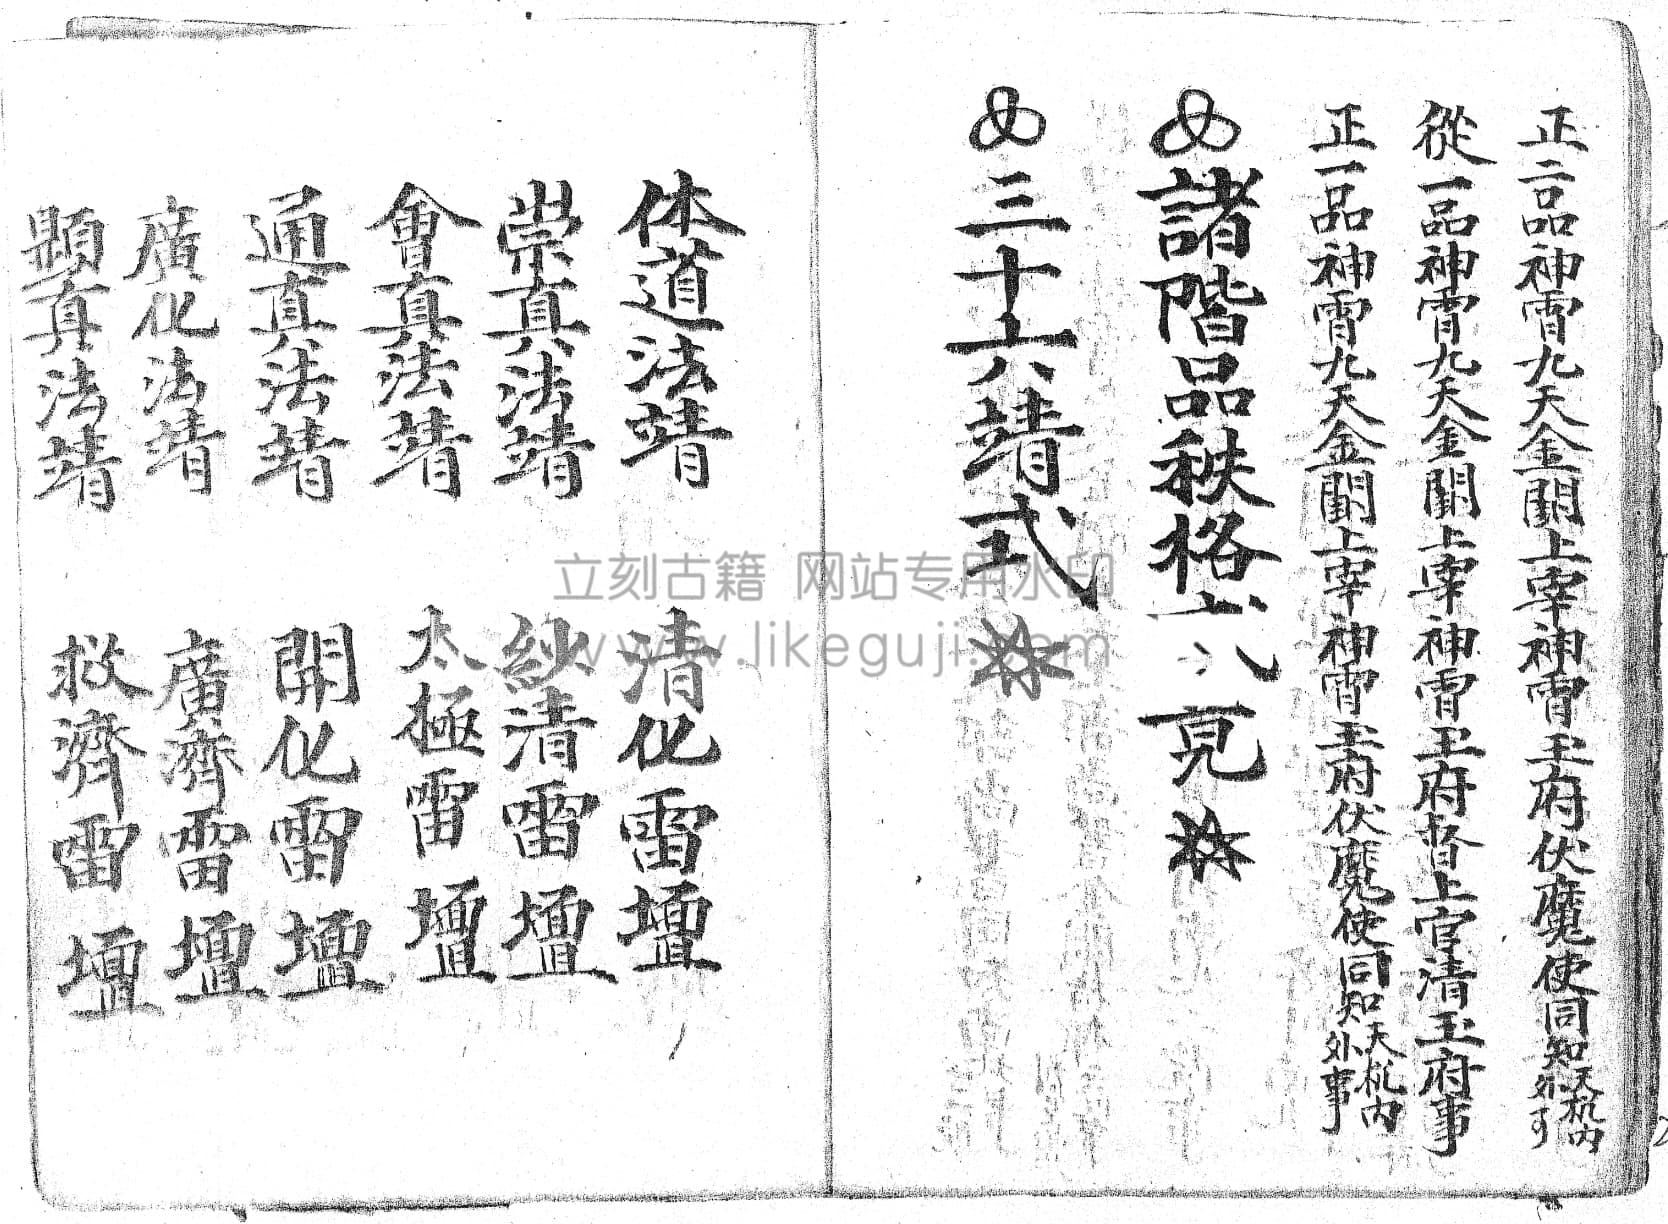 正二品神霄九天金闕上宰神霄玉府伏魔使同知天机内外事
從一品神霄九天金闕上宰神霄玉府督上官清玉府事
正一品神霄九天金闕上宰神霄玉府伏魔使同知天机内外事
諸階品秩格式
三十六靖式
体道法靖 清化雷壇
崇真法靖 紗清雷壇
會真法靖 太極雷壇
通真法靖 開化雷壇
廣化法靖 廣濟雷壇
顕真法靖 救濟雷壇
立刻古籍 网站专用水印
www.likeguji.com